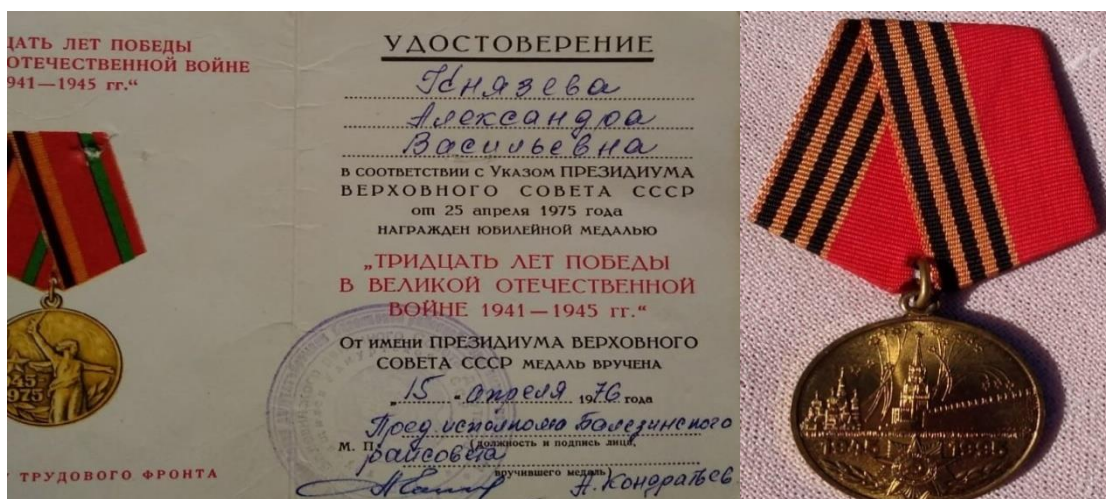 ЦАТЬ ЛЕТ ПОБЕДЫ
ОТЕЧЕСТВЕННОЙ ВОЙНЕ
941—1945 гг.“
45
1975
ТРУДОВОГО ФРОНТА
УДОСТОВЕРЕНИЕ
Князева
Александра
Васильевна
в соответствии с Указом ПРЕЗИДИУМА
ВЕРХОВНОГО СОВЕТА СССР
от 25 апреля 1975 года
НАГРАЖДЕН ЮБИЛЕЙНОЙ МЕДАЛЬЮ
„ТРИДЦАТЬ ЛЕТ ПОБЕДЫ
В ВЕЛИКОЙ ОТЕЧЕСТВЕННОЙ
ВОЙНЕ 1941—1945 гг.“
От имени ПРЕЗИДИУМА ВЕРХОВНОГО
СОВЕТА СССР МЕДАЛЬ ВРУЧЕНА
„15 “ апреля 1976 года
Пред. исполкома Балезинского
М. П. (должность и подпись лица,
райсовета
вручившего медаль)
А. Кондратьев
1945 1995